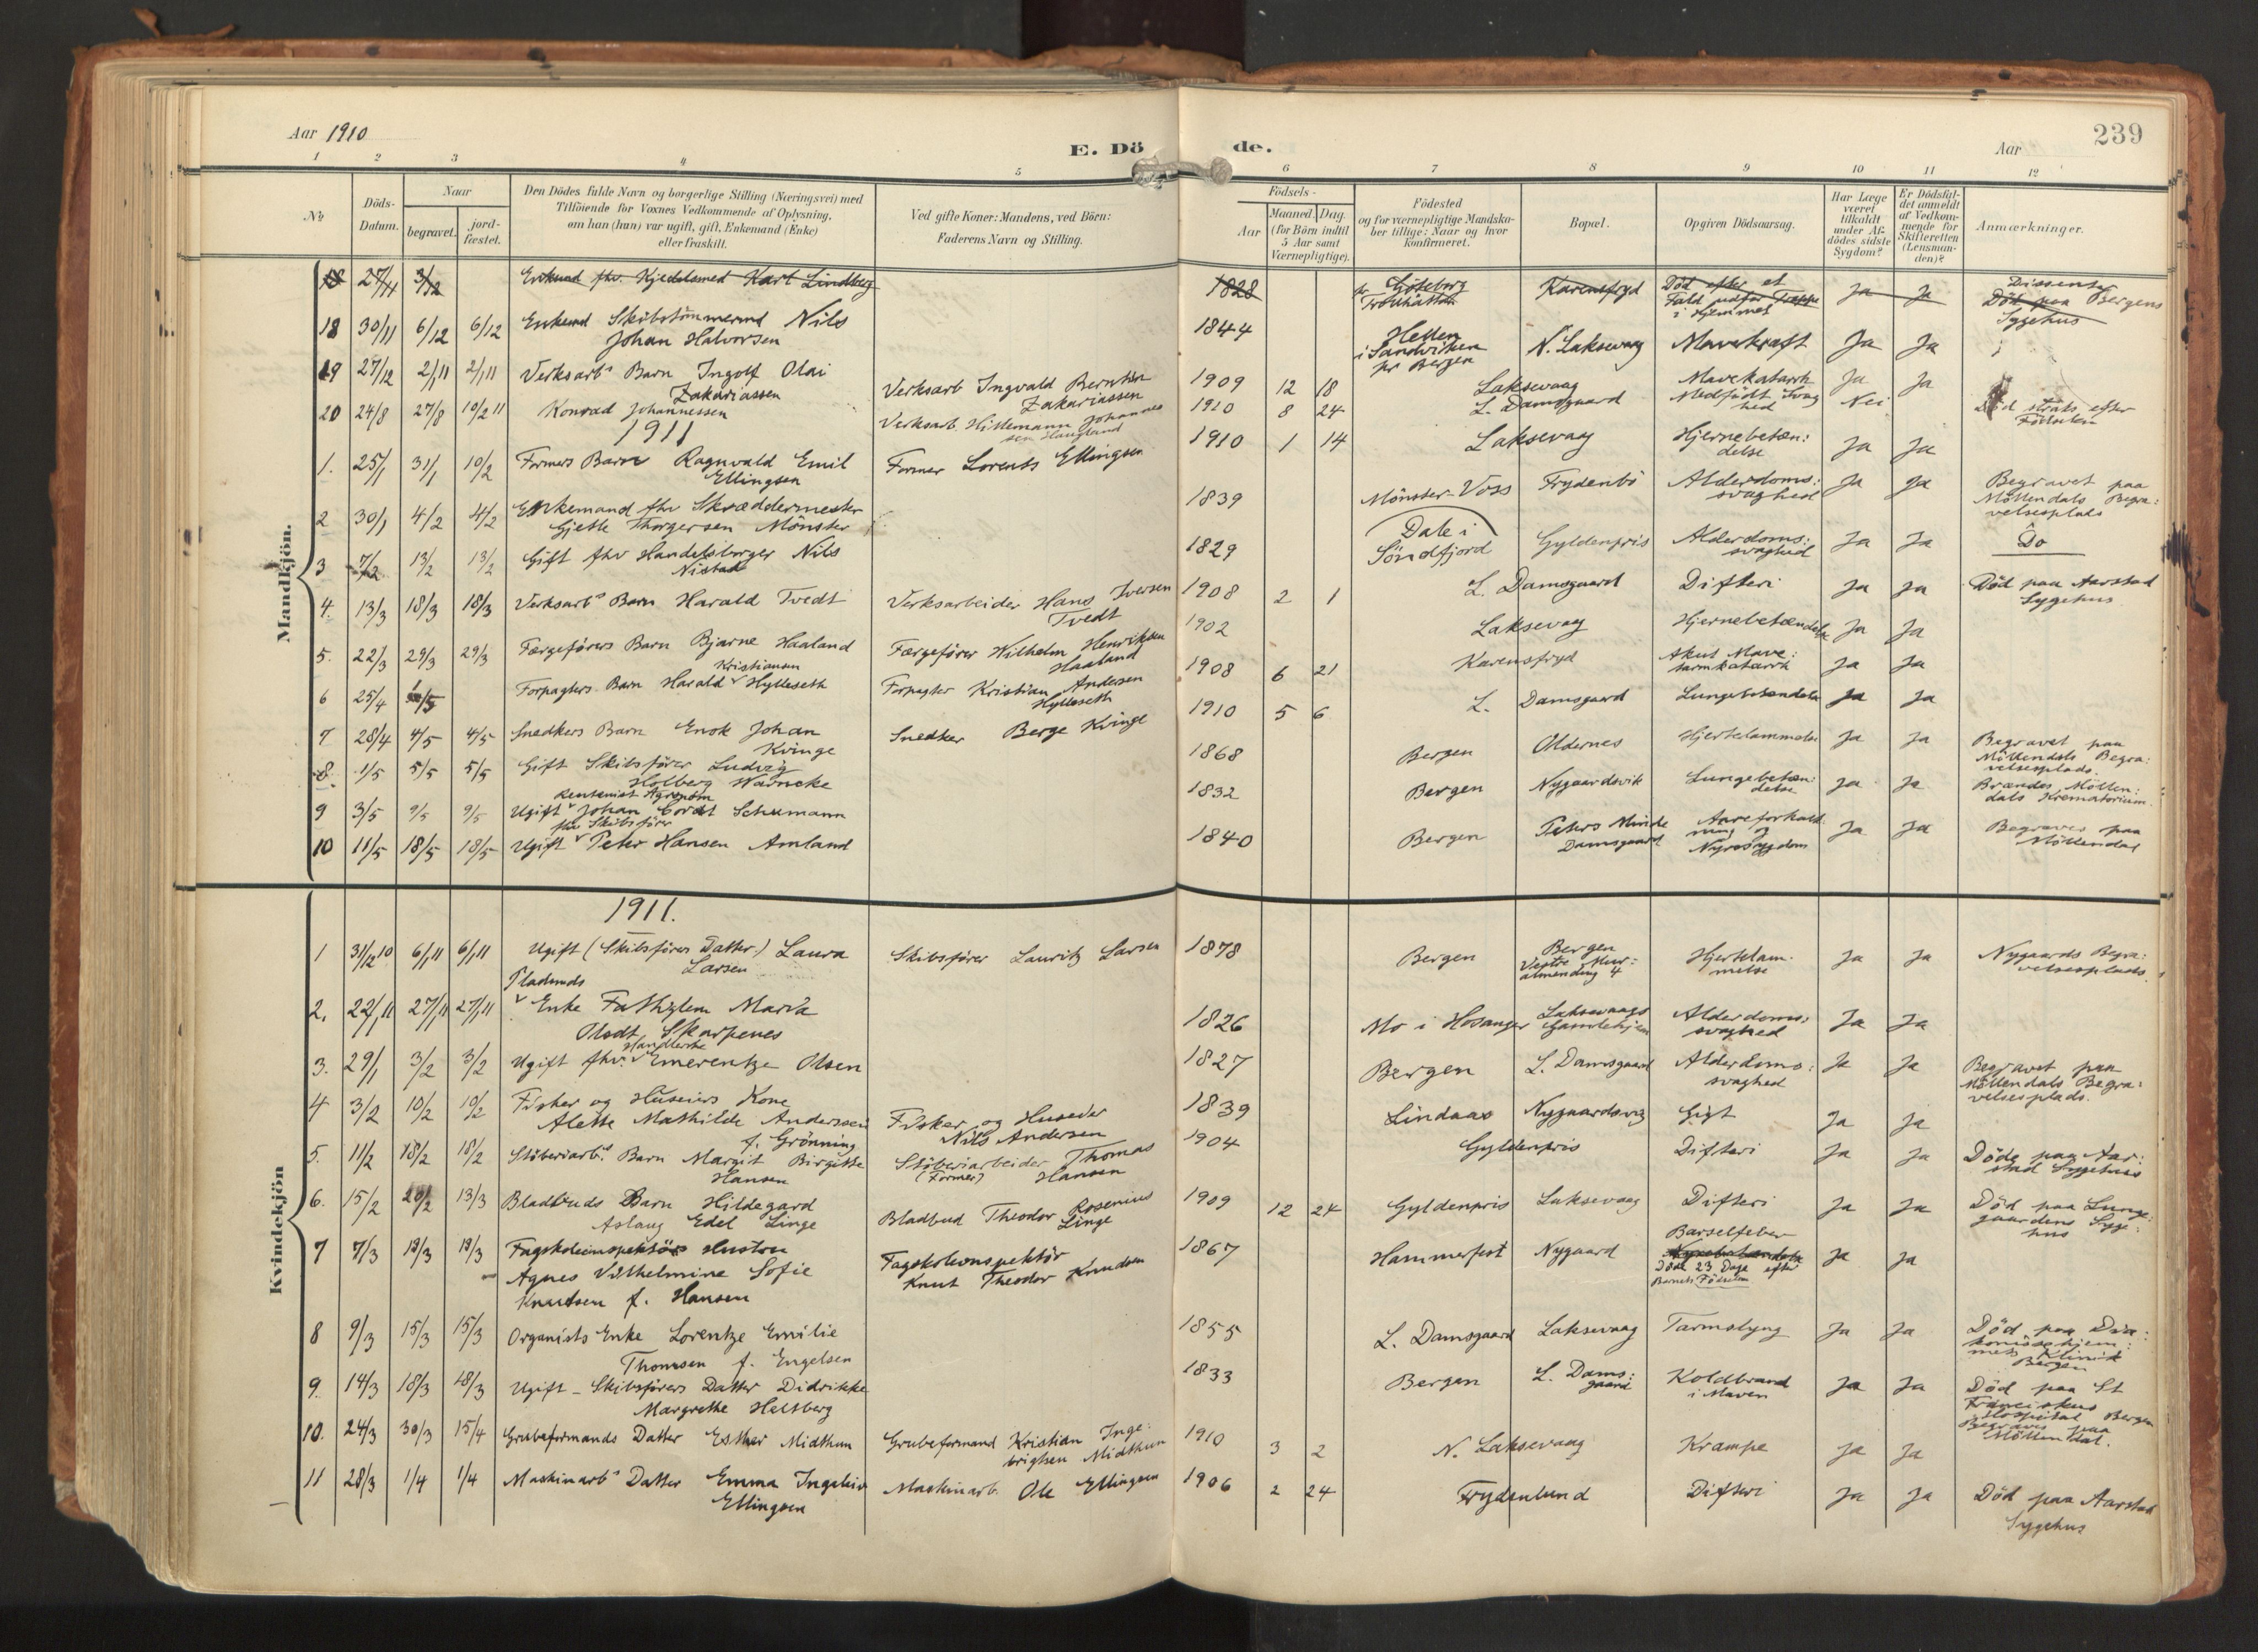 Aar 1910
E. Dö de.
Aar
239
1 2 3 4 5 6 7 8 9 10 11 12
No
Döds-Datum.
Naar
begravet.
jord-fæstet.
Den Dödes fulde Navn og borgerlige Stilling (Næringsvei) med
Tilföiende for Voxnes Vedkommende af Oplysning,
om han (hun) var ugift, gift, Enkemand (Enke)
eller fraskilt.
Ved gifte Koner: Mandens, ved Börn:
Faderens Navn og Stilling.
Födsels-
Aar
Maaned. Dag.
(for Börn indtil
5 Aar samt
Værnepligtige).
Födested
og for værnepligtige Mandska-
ber tillige: Naar og hvor
Konfirmeret.
Bopæl.
Opgiven Dödsaarsag.
Har Læge
været
tilkaldt
under Af-
dödes sidste
Sygdom?
Er Dödsfal-
det anmeldt
af Vedkom-
mende for
Skifteretten
(Lensman-
den)?
Anmærkninger.
Mandkjön.
18 27/11 3/12 Enkemd fhv. Kjedelsmed Karl Lindberg 1828 Göteborg Trollhättan Karensfryd Död efter et Fald udfor Trappe i Hjemmet Ja Ja Dissenter Död paa Bergens Sygehus
18 30/11 6/12 6/12 Enkemd Skibstömmermd Nils
Johan Halvorsen 1844 Hellen i Sandviken pr Bergen N. Laksevaag Mavekræft Ja Ja
19 27/12 2/1 11 2/1 11 Verksarbs Barn Ingolf Olai
Zakariassen Verksarb Ingvald Berntsen Zakariassen 1909 12 18 Laksevaag Mavekatarrh Ja Ja
20 24/8 27/8 10/2 11 Konrad Johannessen Verksarb. Hillemann Johannes
sen Haugland 1910 8 24 L. Damsgaard Medfödt Svag
hed Nei Död straks efter
Födselen
1911
1. 25/1 31/1 10/2 Formers Barn Ragnvald Emil
Ellingsen Former Lorents Ellingsen 1910 1 14 Laksevaag Hjernebetæn:
delse Ja Ja
2 30/1 4/2 4/2 Enkemand fhv Skræddermester
Gjetle Thorgersen Mönster 1839 Mönster-Voss Frydenbö Alderdoms:
svaghed Ja Ja Begravet paa
Möllendals Begra:
velsesplads
3 7/2 13/2 13/2 Gift fhv Handelsborger Nils
Nistad 1829 Dale i
Söndfjord Gyldenpris Alderdoms:
svaghed Ja Ja Do
4. 13/3 18/3 18/3 Verksarbs Barn Harald Tvedt Verksarbeider Hans Iversen
Tvedt 1908 2 1 L. Damsgaard Difteri Ja Ja Död paa Aarstad
Sygehus
5. 22/3 29/3 29/3 Færgeförers Barn Bjarne Haaland Færgeförer Wilhelm Henriksen
Haaland 1902 Laksevaag Hjernebetændelse Ja Ja
6 25/4 1/5 Forpagters Barn Harald Kristiansen Hylleseth Forpagter Kristian Andersen
Hylleseth 1908 6 21 Karensfryd Akut Mave:
tarmkatarrh Ja Ja
7 28/4 4/5 4/5 Snedkers Barn Enok Johan
Kvinge Snedker Berge Kvinge 1910 5 6 L. Damsgaard Lungebetændelse Ja Ja
8. 1/5 5/5 5/5 Gift Skibsförer Ludvig
Holberg Warncke 1868 Bergen Oldernes Hjertelammelse Ja Ja Begravet paa
Möllendals Begra:
velsesplads.
9 3/5 9/5 9/5 Ugift Rentenist Agronom Johan Cordt Schumann 1832 Bergen Nygaardsvik Lungebetæn:
delse Ja Ja Brændes Möllen:
dals Krematorium
10 11/5 18/5 18/5 Ugift fhv Skibsförer Peter Hansen Amland 1840 Bergen Peters Minde
Damsgaard Aareforkalk
ning og
Nyresygdom Ja Ja Begraves paa
Möllendal
Kvindekjön
1911.
1 31/12 10 6/1 11 6/1 11 Ugift (Skibsförers Datter) Laura
Larsen Skibsförer Lauritz Larsen 1878 Bergen Bergen
Vestre Mur:
almending 4 Hjertelam-
melse Ja Ja Nygaards Begra:
velsesplads
2. 22/1 11 27/1 11 27/1 11 Pladsmds Enke Maria
Olsdt. Skarpenes 1826 Mo i Hosanger Laksevaags
Gamlehjem Alderdoms:
svaghed Ja Ja
3. 29/1 3/2 3/2 Ugift fhv. Handlerske Emerentze Olsen 1827 Bergen L. Damsgaard Alderdoms:
svaghed Ja Ja Begravet paa
Möllendals Begra:
velsesplads.
4 3/2 10/2 10/2 Fisker og Huseiers Kone
Alette Mathilde Anderssen
f. Grönning Fisker og Huseier
Nils Andersen 1839 Lindaas Nygaardsvig Gigt Ja Ja
5. 11/2 18/2 18/2 Stöberiarbs Barn Margit Birgitte
Hansen Stöberiarbeider Thomas
(Former) Hansen 1904 Gyldenpris Difteri Ja Ja Döde paa Aar:
stad Sygehus
6. 15/2 20/2 13/3 Bladbuds Barn Hildegard
Aslaug Edel Linge Bladbud Theodor Rosenius
Linge 1909 12 24 Gyldenpris Laksevaag Difteri Ja Ja Död paa Lunge:
gaardens Syge:
hus
7 7/3 13/3 13/3 Fagskoleinspektörs Hustru
Agnes Vilhelmine Sofie
Knudsen f. Hansen Fagskoleinspektör
Knut Theodor Knudsen 1867 Hammerfest Nygaard Barselfeber
Nyrebetændelse
Död 23 Dage efter
Barnets Födselen Ja Ja
8 9/3 15/3 15/3 Organists Enke Lorentze Emilie
Thomsen f. Engelsen 1855 L. Damsgaard Laksevaag Tarmslyng Ja Ja Död paa Dia:
konissehjem:
mets Klinik
Bergen
9. 14/3 18/3 18/3 Ugift - Skibsförers Datter Didrikke
Margrethe Heltberg 1833 Bergen L. Dams:
gaard Koldbrand
i Maven Ja Ja Död paa St
Franciskus
Hospital Bergen
Begraves paa
Möllendal.
10. 24/3 30/3 15/4 Grubeformands Datter Esther Midthun Grubeformand Kristian Inge:
brigtsen Midthun 1910 3 2 N. Laksevaag Krampe Ja Ja
11 28/3 1/4 1/4 Maskinarbs Datter Emma Ingeleiv
Ellingsen Maskinarb. Ole Ellingsen 1906 2 24 Frydenlund Difteri Ja Ja Död paa Aarstad
Sygehus